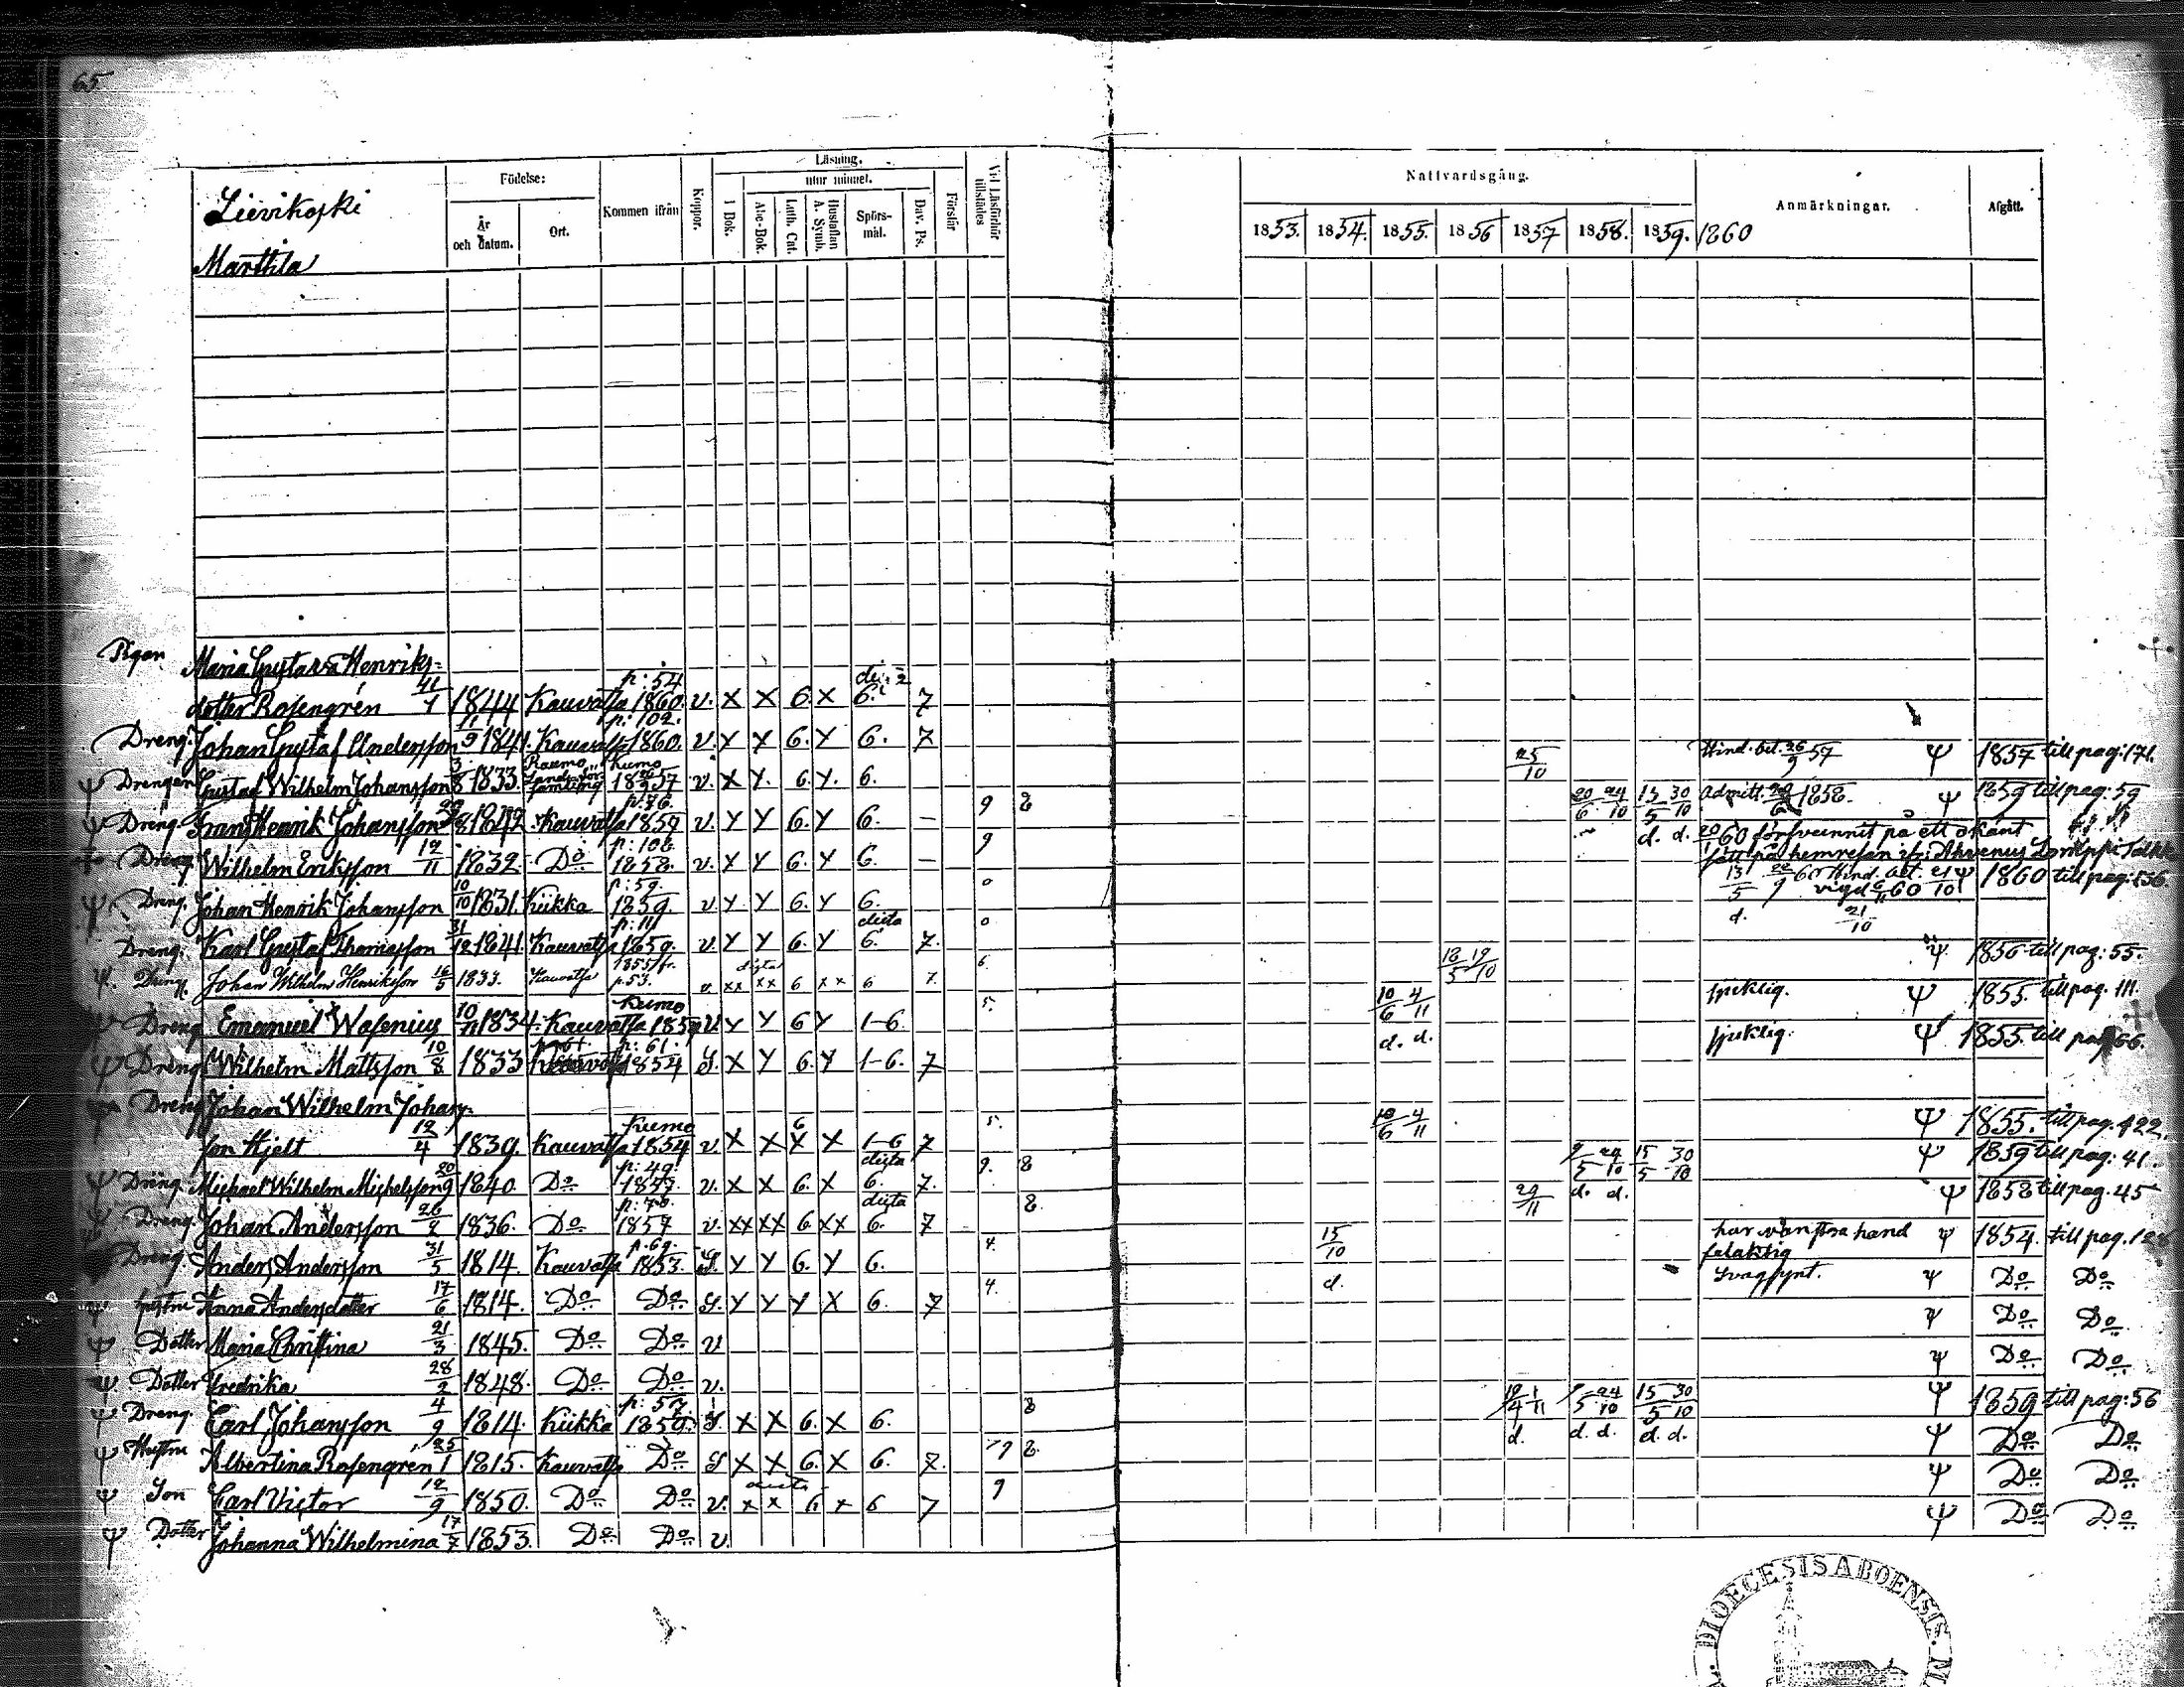 65
Lievikoski
Marttila
Födelse:
År och datum.
Ort.
Kommen ifrån
Koppor.
Läsning.
utur minnet.
I Bok.
Abc-Bok.
Luth. Cat.
Hustaflan A. Symb.
Spörs-mål.
Dav. Ps.
Förstår
Vid Läsförhör tillstädes
Nattvardsgång.
1853. 1854. 1855. 1856 1857 1858. 1859. 1860
Anmärkningar.
Afgått.
Pigan Maria Gustava Henriks=
dotter Rosengrén 1844 Kauvatsa p: 54 1860. v. X X 6. X 6. 7
Dreng. Johan Gustaf Andersson 11/9 1841. Kauvatsa p: 102. 1860. v. Y Y 6. Y 6. 7
Ψ Drengen Gustaf Wilhelm Johansson 3/8 1833. Raumo Kumo 1857 v. X Y. 6. Y. 6. 25/10 Hind. bet. 26/9 57 Ψ 1857 till pag: 171.
Ψ Dreng. Frans Henrik Johansson 1842. Kauvatsa p: 76. 1859 v. Y Y 6. Y 6. — 9 8 20/6 24/10 15/5 30/10 Admitt. 1858. Ψ 1859 till pag: 59
Dreng Wilhelm Eriksson 12/11 1832. Do p: 106 1858. v. Y Y 6. Y 6. — 9 d. d. 20/60 försvunnit på ett okänt
sätt på hemresan
Ψ Dreng. Johan Henrik Johansson 10/10 1831. Kiikka p: 59. 1859. v. Y Y 6. Y 6. 0 13/5 Hind. bet. vigd 60 Ψ 1860 till pag: 156.
Dreng. Karl Gustaf Thomasson 31/12 1841. Kauvatsa p: 111 1859. v. Y Y 6. Y dicta 6. 7. 0 d. 21/10
Ψ. Dreng. Johan Wilhelm Henriksson 16/5 1833. Kauvatsa 1855 fr. p. 53. v. xx xx 6 xx 6 7. 6. 18/5 19/10 Ψ. 1856 till pag: 55.
Ψ Dreng Emanuel Wasenius 10/11 1834. Kauvatsa Kumo v. Y Y 6 Y 1-6. 5. 10/6 4/11 sjuklig. Ψ 1855. till pag. 111.
Ψ Dreng Wilhelm Mattsson 10/8 1833 p: 61. 1854 S. X Y 6. Y 1-6. 7 d. d. sjuklig. Ψ 1855. till pag 66.
Dreng Johan Wilhelm Johans-
son Hjelt 12/4 1839. Kauvatsa Kumo 1854 v. X X 6 X X 1-6 7 5. 10/6 4/11 Ψ 1855. till pag. 422.
Ψ Dreng. Michael Wilhelm Michelsson 20/9 1840. Do p: 49. 1857. v. X X 6. X dicta 6. 7. 9. 8 9/5 24/10 15/5 30/10 Ψ 1859 till pag: 41.
Ψ Dreng. Johan Andersson 26/2 1836. Do p: 78. 1857 v. xx xx 6 xx dicta 6. 7 8. 29/11 d. d. Ψ 1858 till pag. 45
Dreng. Anders Andersson 31/5 1814. Kauvatsa p. 69. 1853. S. Y Y 6. Y 6. 4. 15/10 har vänstra hand
felaktig Ψ 1854. till pag.
Ψ hustru Anna Andersdotter 17/6 1814. Do Do S. Y Y Y X 6. 7 4. d. svagsynt. Ψ Do Do
Ψ Dotter Maria Christina 21/3 1845. Do Do v Ψ Do Do
Ψ Dotter Fredrika 28/2 1848. Do Do v. Ψ Do Do
Ψ Dreng. Carl Johansson 4/9 1814. Kiikka p: 57. S. X X 6. X 6. 8 19/4 1/11 9/5 24/10 15/5 30/10 Ψ 1859 till pag: 56
Ψ Hustru Albertina Rosengrén 25/1 1815. Kauvatsa Do S X X 6. X 6. 7. 9 8. d. d. d. d. d. Ψ Do Do
Ψ Son Carl Victor 12/9 1850. Do Do v. x x dicta 6 x 6 7 9 Ψ Do Do
Ψ Dotter Johanna Wilhelmina 17/7 1853. Do Do v. Ψ Do Do
DIOECESIS ABOENSIS.